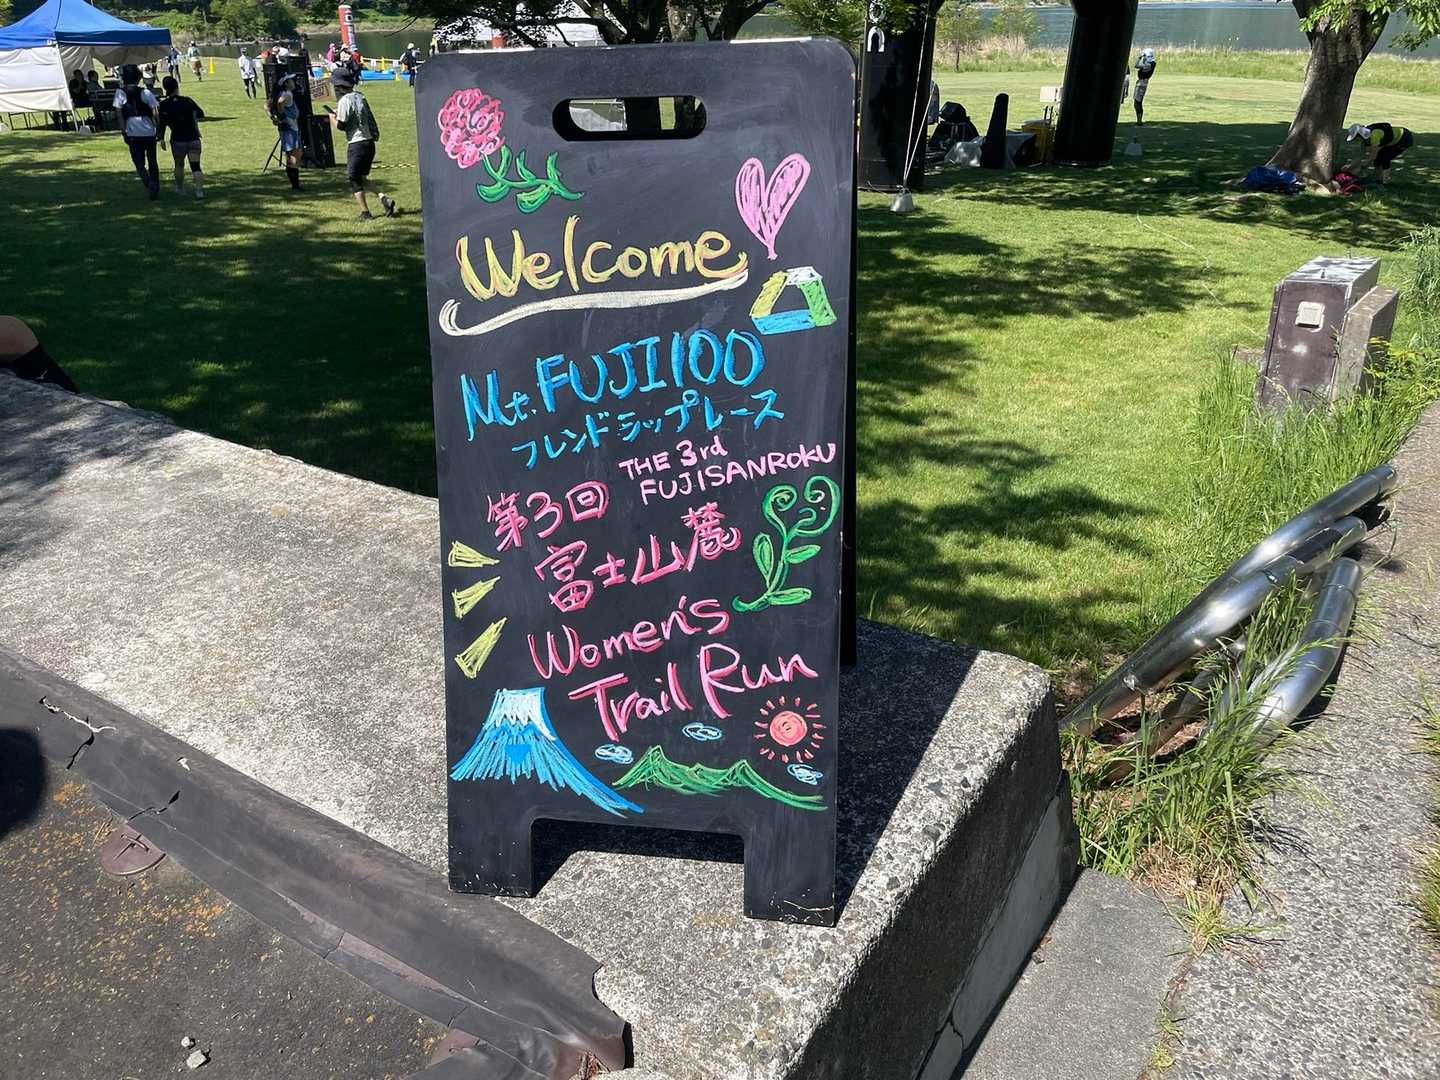 Welcome
Mt.FUJI100
フレンドシップレース
THE 3rd
FUJISANROKU
第3回
富士山麓
Women's
Trail Run